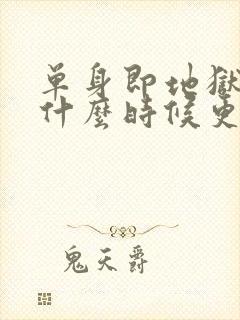 單身即地獄
什麼時候更
鬼天爵